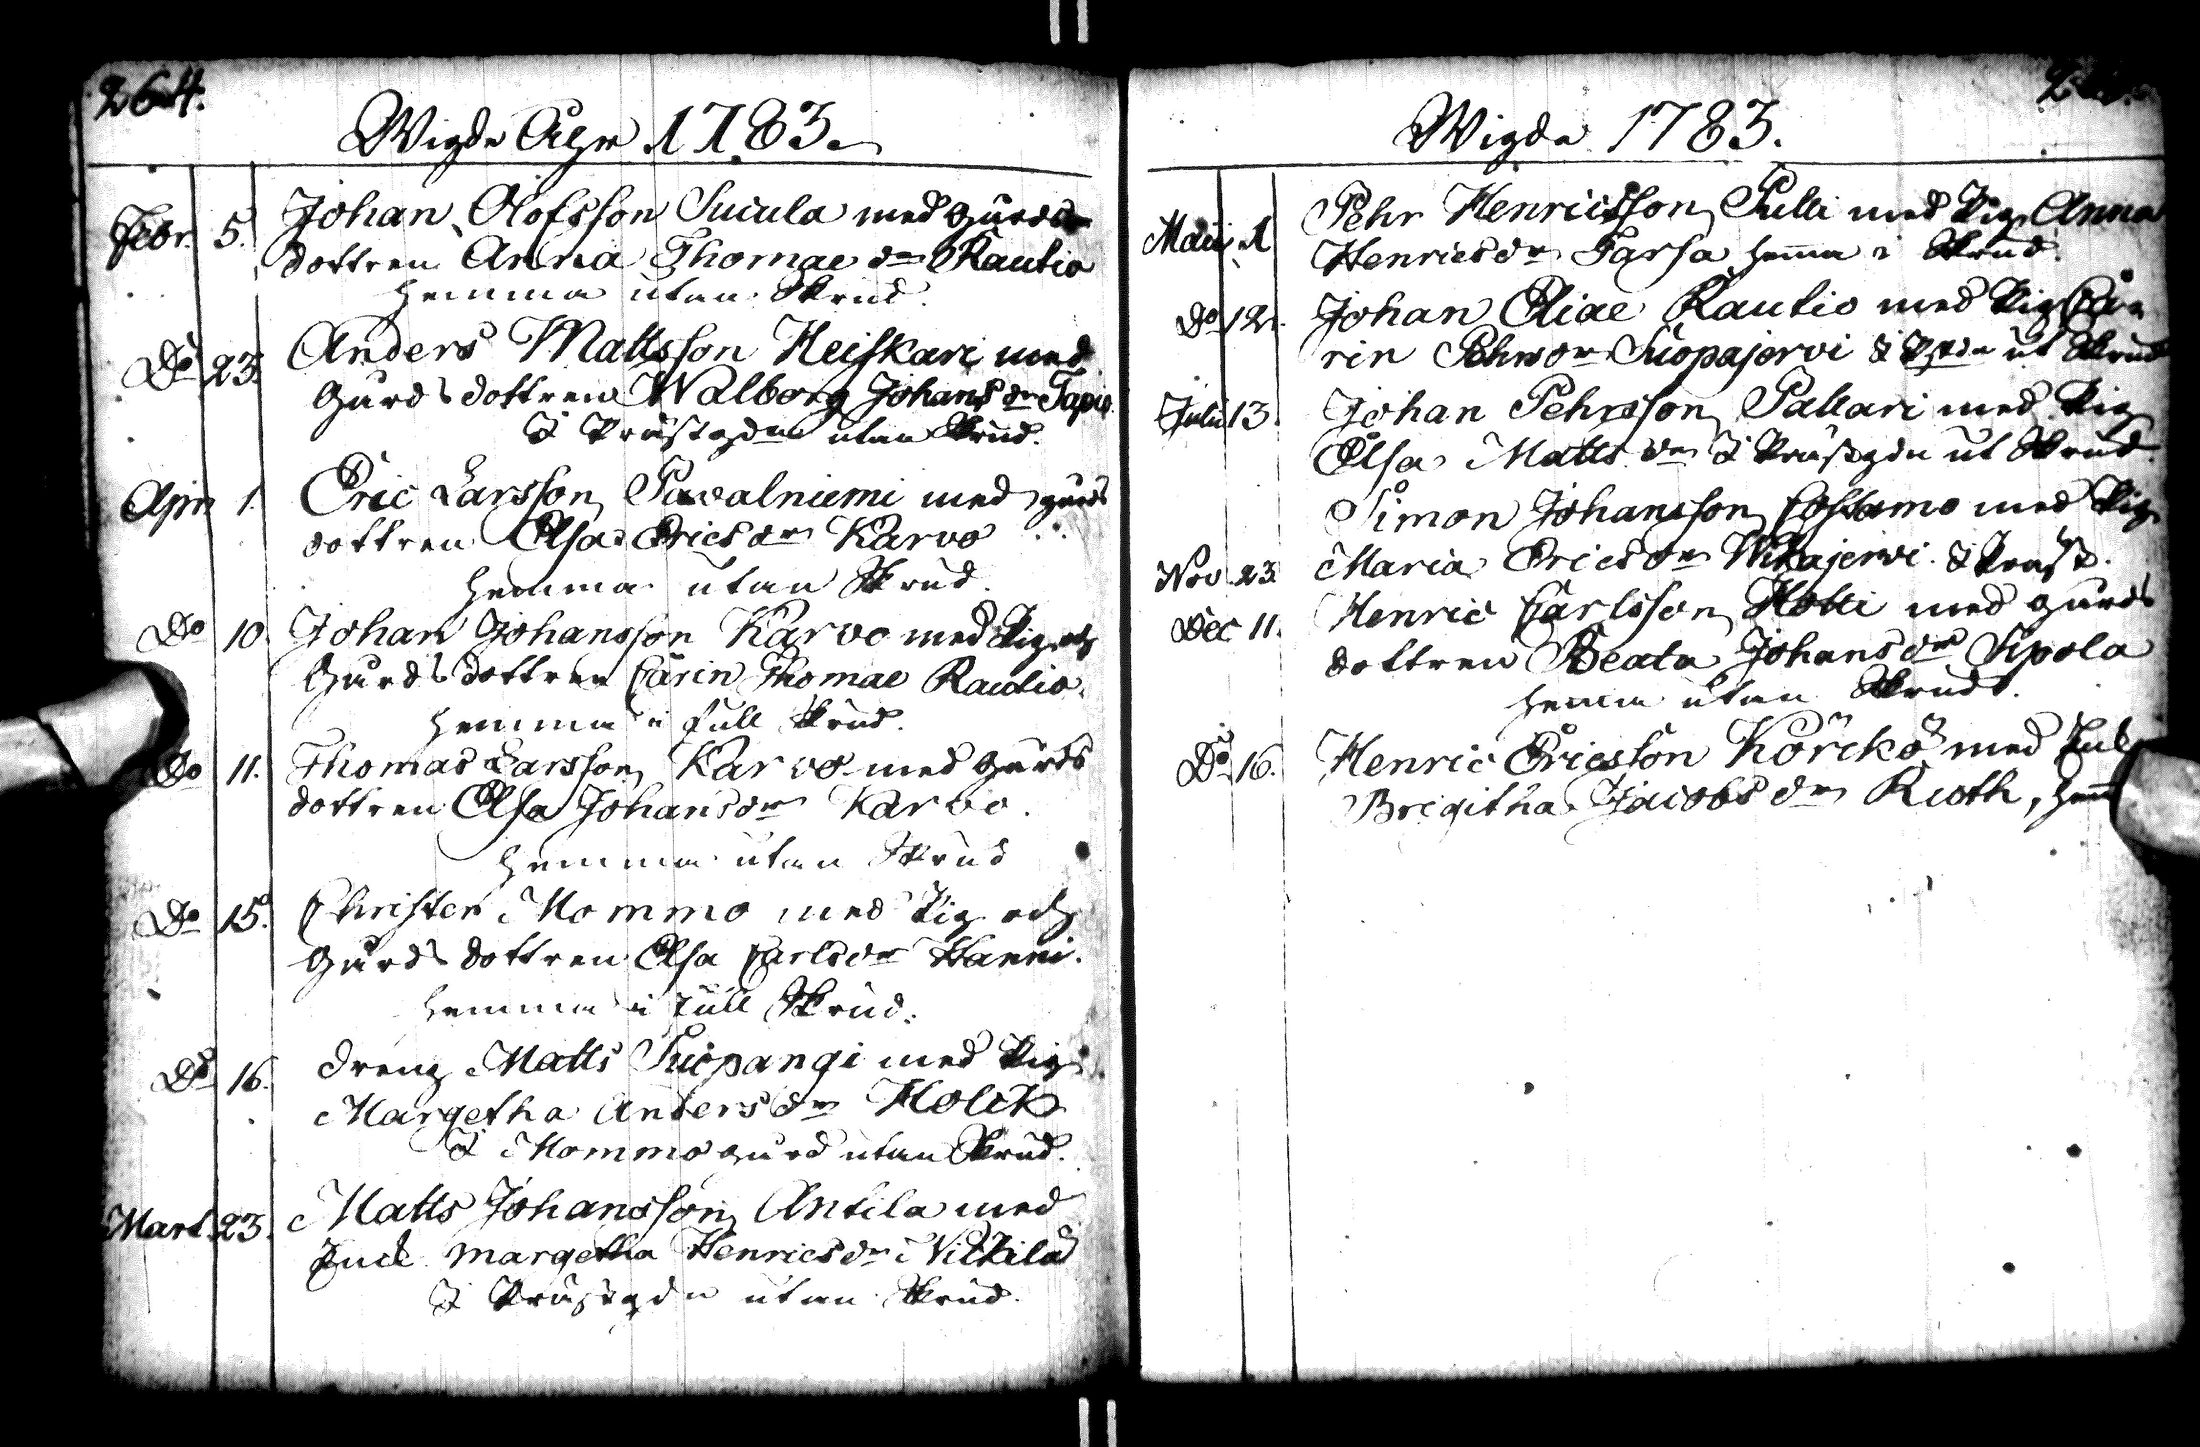 264.
Wigde Åhr 1783.
Febr. 5. Johan Olofsson Sucula med gårds
dottren Anna Thomae dr Rautio
hemma utan Skrud.
Do 23. Anders Mattsson Heiskari med
Gårds dottren Walborg Johans dr Tapio
I Prästgdn utan Skrud.
Apr. 1. Eric Larsson Pawalniemi med gårds
dottren Elsa Erics dr Karvo
hemma utan Skrud.
Do 10. Johan Johansson Karvo med Pig. och
Gårds dottren Carin Thomae Rautio.
hemma i full Skrud.
Do 11. Thomas Larsson Karvo med gårds
dottren Elsa Johans dr Karvo.
hemma utan Skrud
Do 15. Christer Mommo med Pig. och
Gårds dottren Elsa Carls dr Hanni.
hemma i full Skrud.
Do 16. Dreng Matts Suopangi med Pig.
Margetha Anders dr Holck
I Mommo gård utan Skrud.
Mart. 23. Matts Johansson Antila med
Enck. Margetha Henrics dr Nickilä
I Prästgdn utan Skrud.
Wigde 1783.
Maii 1 Pehr Henricsson Pulli med Pig. Anna
Henrics dr Tarsa hemma i Skrud.
Do 12. Johan Eliae Rautio med Pig. Ca
rin Pehrs dr Suopajervi I Pgdn ut Skrud
Julii 13. Johan Pehrsson Pallari med Pig
Elsa Matts dr I Prästgdn ut Skrud.
Simon Johansson Cossamo med Pig.
Nov. 23. Maria Erics dr Wikajervi. I Präst.
Dec 11. Henric Carlsson Hotti med gårds
dottren Beata Johans dr Sipola
hemma utan Skrud.
Do 16. Henric Ericsson Körckö med
Bregitha Jacobs dr Ruoth,